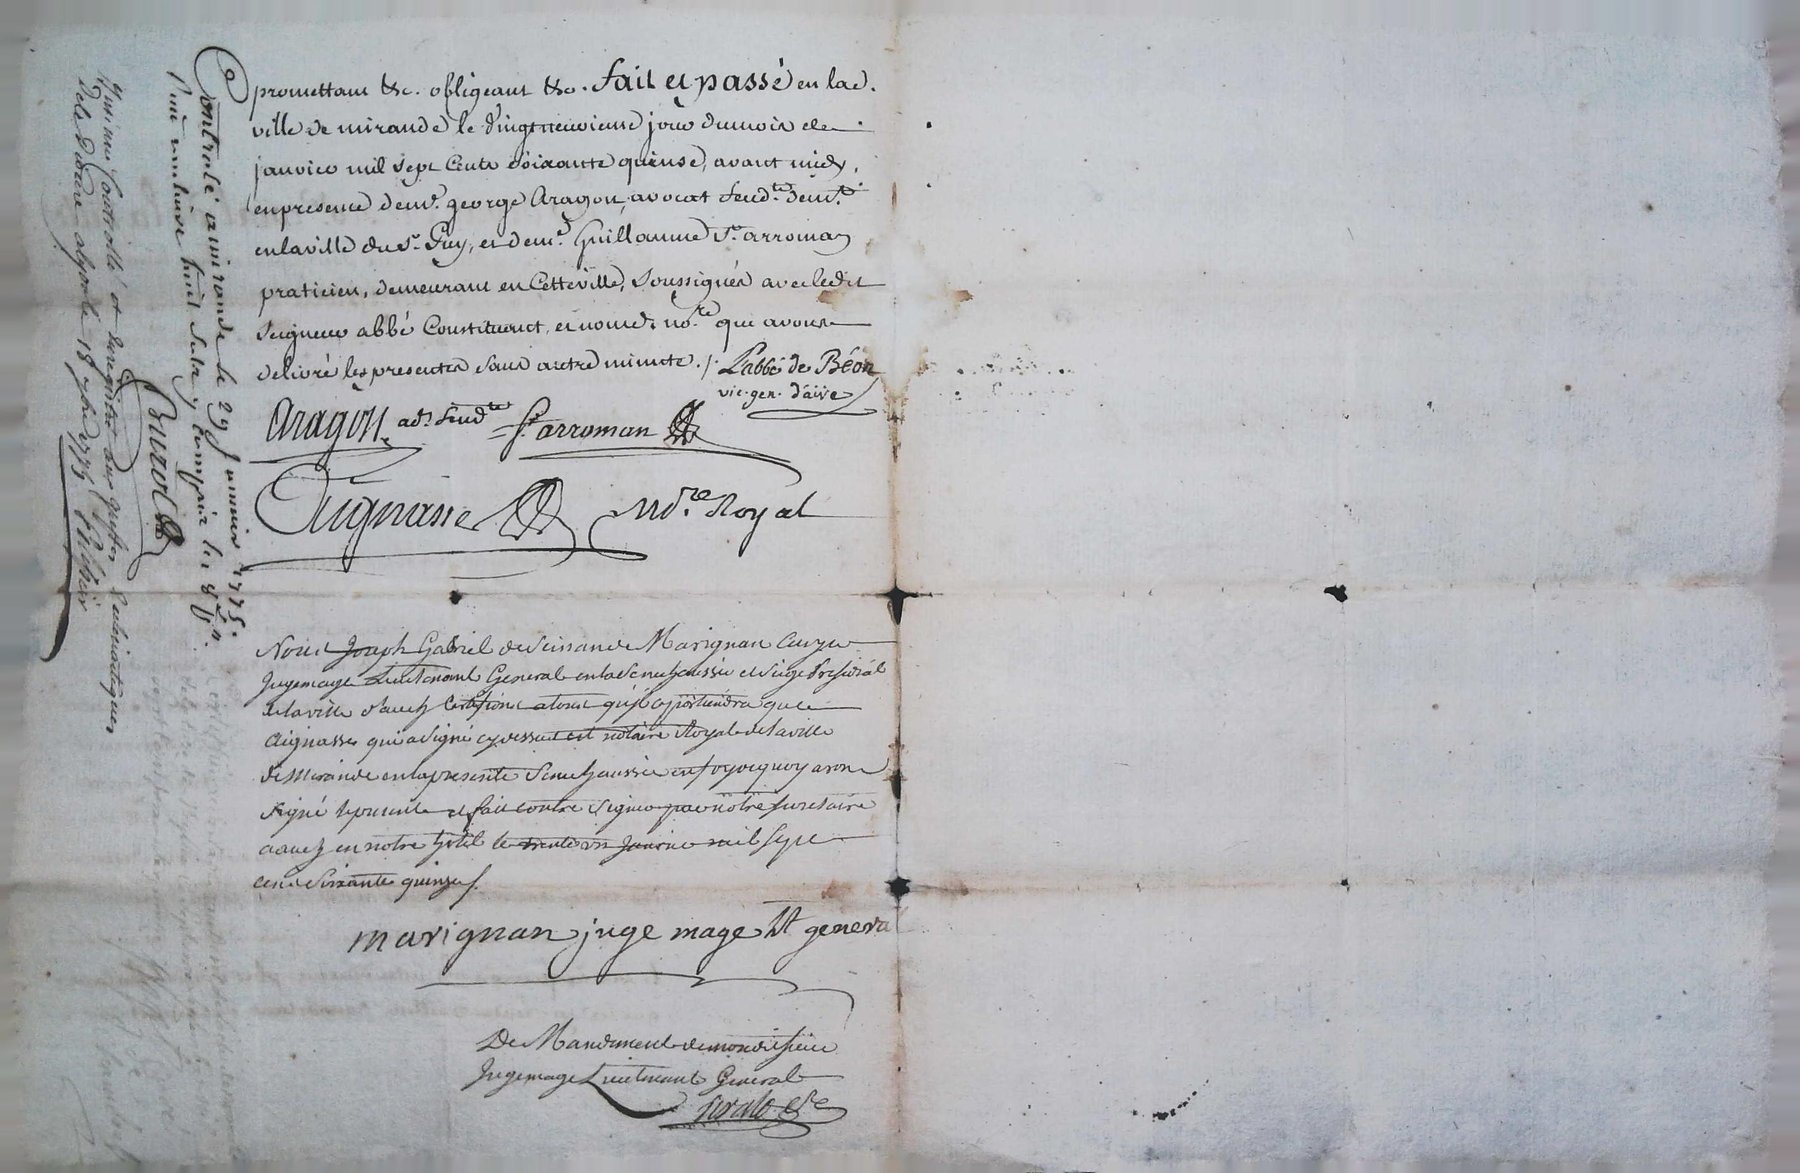 promettant &c. obligeant &c. fait et passé en lad.
ville de mirande le vingtneuvieme jour du mois de
janvier mil sept cents soixante quinse, avant midy,
en presence de mr. george Aragon, avocat feud.te demt.
en la ville du st. Puy, et de mr. Guillaume St. arroman
praticien, demeurant en Cette ville, soussignés avec ledit
seigneur abbé Constituant, et nous d. no.re qui avons
delivré les presentes sans autre minute. /. L'abbé de Béon
vic. gen. d'aire
Aragon, ad. feud.te St. arroman
Aignasse no.re Royal
Nous Joseph Gabriel de Seissan de Marignan
Juge mage Lieutenant General en la Senechaussée et siege Presidial
de la ville d'auch Certifions a tous qu'il appartiendra que
Aignasse qui a signé cy dessus est notaire Royal de la ville
de Mirande en la presente Senechaussée en foy de quoy avons
signé le presente et fait contre signer par notre secretaire
a auch en notre hotel le trente un Janvier mil sept
cens soixante quinze /.
marignan juge mage Lt general
De Mandement de mondit sieur
Juge mage Lieutenant General
Controlé a mirande le 29 Janvier 1775.
huit sols, compris les 8 s. p. l.
Burol
Controllé et enregistré au greffe Ecclesiastiques